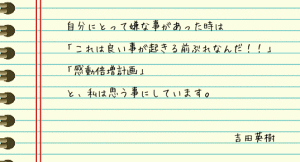 自分にとって嫌な事があった時は
「これは良い事が起きる前ぶれなんだ！！」
『感動倍増計画』
と、私は思う事にしています。
吉田英樹